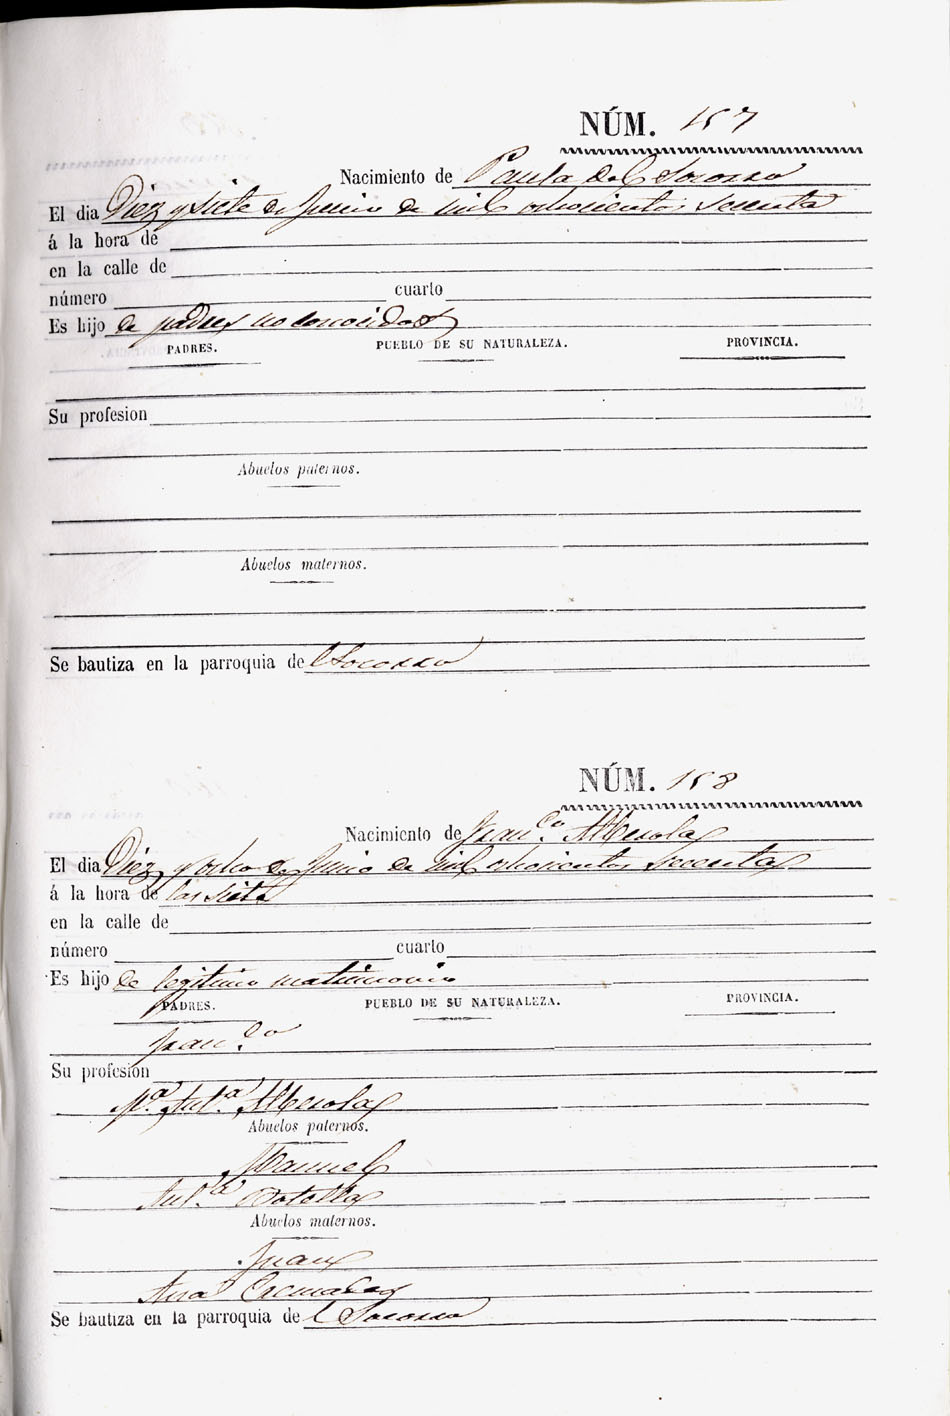 NÚM. 157
Nacimiento de Paula del Socorro
El dia Diez y siete de Junio de mil ochocientos sesenta
á la hora de
en la calle de
número cuarto
Es hijo de padres no conocidos
PADRES. PUEBLO DE SU NATURALEZA. PROVINCIA.
Su profesion
Abuelos paternos.
Abuelos maternos.
Se bautiza en la parroquia de l Socorro
NÚM. 158
Nacimiento de Fran.co Alberola
El dia Diez y ocho de Junio de mil ochocientos sesenta
á la hora de las siete
en la calle de
número cuarto
Es hijo de legitimo matrimonio
PADRES. PUEBLO DE SU NATURALEZA. PROVINCIA.
Fran.co
Su profesion
M.a Ant.a Alberola
Abuelos paternos.
Manuel
Ant.a
Abuelos maternos.
Juan
Ana
Se bautiza en la parroquia de l Socorro